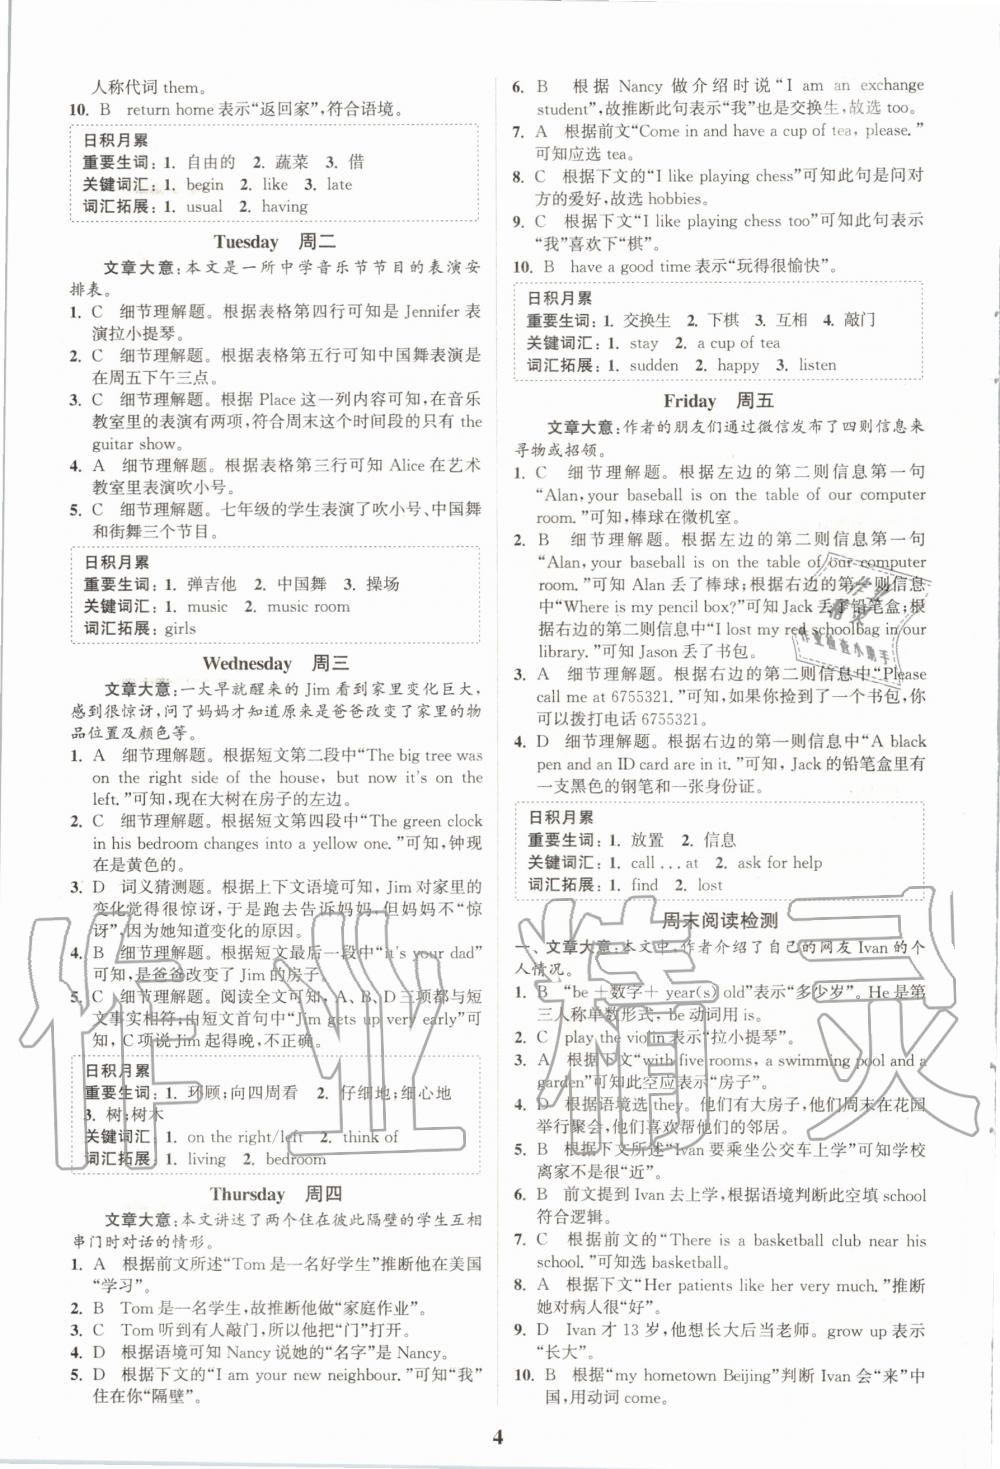 人称代词 them。
10. B return home 表示“返回家”,符合语境。
日积月累
重要生词:1. 自由的 2. 蔬菜 3. 借
关键词汇:1. begin 2. like 3. late
词汇拓展:1. usual 2. having
Tuesday 周二
文章大意:本文是一所中学音乐节节目的表演安
排表。
1. C 细节理解题。根据表格第四行可知是 Jennifer 表
演拉小提琴。
2. C 细节理解题。根据表格第五行可知中国舞表演是
在周五下午三点。
3. C 细节理解题。根据 Place 这一列内容可知,在音乐
教室里的表演有两项,符合周末这个时间段的只有 the
guitar show。
4. A 细节理解题。根据表格第三行可知 Alice 在艺术
教室里表演吹小号。
5. C 细节理解题。七年级的学生表演了吹小号、中国舞
和街舞三个节目。
日积月累
重要生词:1. 弹吉他 2. 中国舞 3. 操场
关键词汇:1. music 2. music room
词汇拓展:girls
Wednesday 周三
文章大意:一大早就醒来的 Jim 看到家里变化巨大,
感到很惊讶,问了妈妈才知道原来是爸爸改变了家里的物
品位置及颜色等。
1. A 细节理解题。根据短文第二段中“The big tree was
on the right side of the house, but now it's on the
left. ”可知,现在大树在房子的左边。
2. C 细节理解题。根据短文第四段中“The green clock
in his bedroom changes into a yellow one. ”可知,钟现
在是黄色的。
3. D 词义猜测题。根据上下文语境可知,Jim 对家里的
变化觉得很惊讶,于是跑去告诉妈妈,但妈妈“没有惊
讶”,因为她知道变化的原因。
4. B 细节理解题。根据短文最后一段中“it's your dad”
可知,是爸爸改变了 Jim 的房子。
5. C 细节理解题。阅读全文可知,A、B、D三项都与短
文事实相符,由短文首句中“Jim gets up very early”可
知,C 项说 Jim 起得晚,不正确。
日积月累
重要生词:1. 环顾;向四周看 2. 仔细地;细心地
3. 树;树木
关键词汇:1. on the right/left 2. think of
词汇拓展:1. living 2. bedroom
Thursday 周四
文章大意:本文讲述了两个住在彼此隔壁的学生互相
串门时对话的情形。
1. A 根据前文所述“Tom 是一名好学生”推断他在美国
“学习”。
2. B Tom 是一名学生,故推断他做“家庭作业”。
3. C Tom 听到有人敲门,所以他把“门”打开。
4. D 根据语境可知 Nancy 说她的“名字”是 Nancy。
5. D 根据下文的“I am your new neighbour. ”可知“我”
住在你“隔壁”。
6. B 根据 Nancy 做介绍时说“I am an exchange
student”,故推断此句表示“我”也是交换生,故选 too。
7. A 根据前文“Come in and have a cup of tea, please. ”
可知应选 tea。
8. C 根据下文的“I like playing chess”可知此句是问对
方的爱好,故选 hobbies。
9. C 根据下文“I like playing chess too”可知此句表示
“我”喜欢下“棋”。
10. B have a good time 表示“玩得很愉快”。
日积月累
重要生词:1. 交换生 2. 下棋 3. 互相 4. 敲门
关键词汇:1. stay 2. a cup of tea
词汇拓展:1. sudden 2. happy 3. listen
Friday 周五
文章大意:作者的朋友们通过微信发布了四则信息来
寻物或招领。
1. C 细节理解题。根据左边的第二则信息第一句
“Alan, your baseball is on the table of our computer
room. ”可知,棒球在微机室。
2. B 细节理解题。根据左边的第二则信息中
“Alan, your baseball is on the table of our computer
room. ”可知 Alan 丢了棒球;根据右边的第一则信息
中“Where is my pencil box?”可知 Jack 丢了铅笔盒;根
据右边的第二则信息中“I lost my red schoolbag in our
library. ”可知 Jason 丢了书包。
3. A 细节理解题。根据右边的第二则信息中“Please
call me at 6755321. ”可知,如果你捡到了一个书包,你
可以拨打电话 6755321。
4. D 细节理解题。根据右边的第一则信息中“A black
pen and an ID card are in it. ”可知,Jack 的铅笔盒里有
一支黑色的钢笔和一张身份证。
日积月累
重要生词:1. 放置 2. 信息
关键词汇:1. call ... at 2. ask for help
词汇拓展:1. find 2. lost
周末阅读检测
一、文章大意:本文中,作者介绍了自己的网友 Ivan 的个
人情况。
1. B “be +数字+ year(s) old”表示“多少岁”。He 是第
三人称单数形式,be 动词用 is。
2. C play the violin 表示“拉小提琴”。
3. A 根据下文“with five rooms, a swimming pool and a
garden”可知此空应表示“房子”。
4. D 根据语境选 they。他们有大房子,他们周末在花园
举行聚会,他们喜欢帮他们的邻居。
5. B 根据下文所述“Ivan 要乘坐公交车上学”可知学校
离家不是很“近”。
6. B 前文提到 Ivan 去上学,根据语境判断此空填 school
符合逻辑。
7. C 根据前文的“There is a basketball club near his
school. ”可知选 basketball。
8. A 根据下文“Her patients like her very much. ”推断
她对病人很“好”。
9. D Ivan 才 13 岁,他想长大后当老师。grow up 表示
“长大”。
10. B 根据“my hometown Beijing”判断 Ivan 会“来”中
国,用动词 come。
4
作业精灵
作业
精灵
作业检查小助手